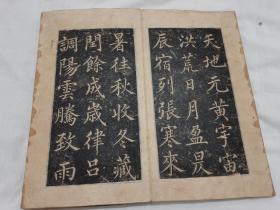 天地元黄宇宙
洪荒日月盈昃
辰宿列張寒來
暑往秋收冬藏
閏餘成歲律吕
調陽雲騰致雨